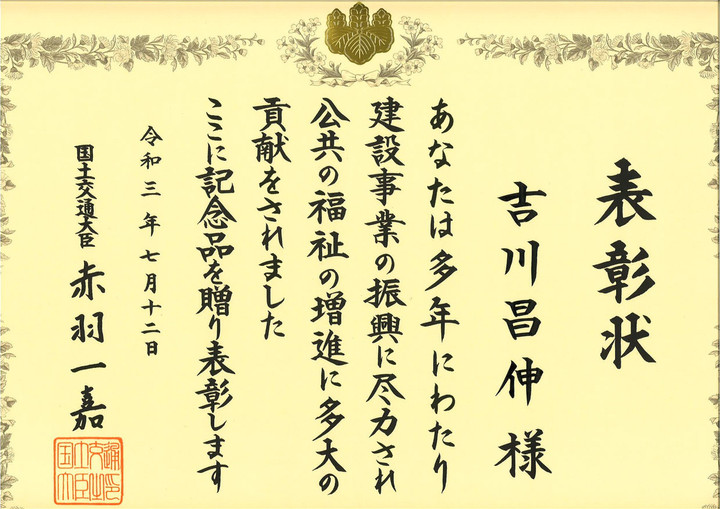 表彰状
吉川昌伸様
あなたは多年にわたり
建設事業の振興に尽力され
公共の福祉の増進に多大の
貢献をされました
ここに記念品を贈り表彰します
令和三年七月十二日
国土交通大臣 赤羽一嘉
国土交通大臣之印